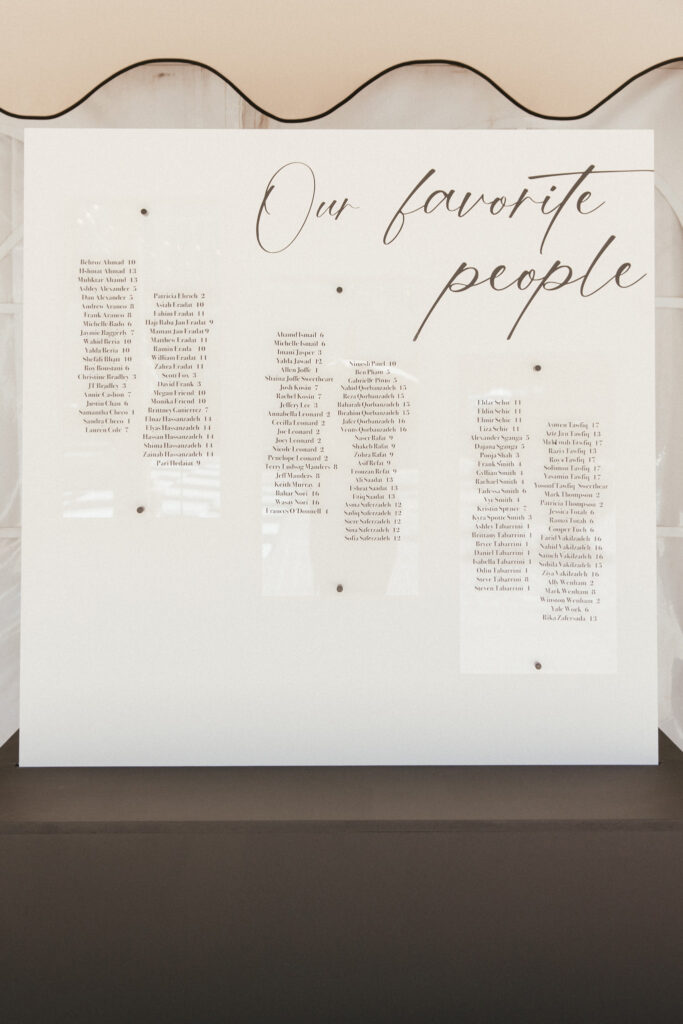 Our favorite
people
Behroz Ahmad 10
Hshmat Ahmad 13
Muhktar Ahamd 13
Ashley Alexander 5
Dan Alexander 5
Andrew Azanco 8
Frank Azanco 8
Michelle Bado 6
Jaymie Baggerly 7
Wahid Beria 10
Yalda Beria 10
Shefali Bhatt 10
Roy Boustani 6
Christine Bradley 3
JT Bradley 3
Annie Casbon 7
Justin Chan 6
Samantha Checo 1
Sandra Checo 1
Lauren Cole 7
Patricia Ehrach 2
Asiah Eradat 10
Fahim Eradat 11
Haji Baba Jan Eradat 9
Maman Jan Eradat 9
Matthew Eradat 11
Ramin Erada 10
William Eradat 11
Zahra Eradat 11
Scott Fox 3
David Frank 3
Megan Friend 10
Monika Friend 10
Brittney Gutierrez 7
Elnaz Hassanzadeh 14
Elyas Hassanzadeh 14
Hassan Hassanzadeh 14
Shima Hassanzadeh 14
Zainab Hassanzadeh 14
Pari Hedaiat 9
Ahamd Ismail 6
Michelle Ismail 6
Imani Jasper 3
Yalda Jawad 12
Allen Joffe 1
Shaina Joffe Sweetheart
Josh Kosin 7
Rachel Kosin 7
Jeffery Lee 3
Annabella Leonard 2
Cecilla Leonard 2
Joe Leonard 2
Joey Leonard 2
Nicole Leonard 2
Penelope Leonard 2
Terry Ludwig Manders 8
Jeff Manders 8
Keith Murray 4
Bahar Nori 16
Wasay Nori 16
Frances O'Donnell 4
Nimesh Patel 10
Ben Pham 5
Gabrielle Pinus 5
Nahid Qorbanzadeh 15
Reza Qorbanzadeh 15
Baharah Qorbanzadeh 15
Ibrahim Qorbanzadeh 15
Jafer Qorbanzadeh 16
Venus Qorbanzadeh 16
Naser Rafat 9
Shakeb Rafat 9
Zohra Rafat 9
Asif Refat 9
Frouzan Refat 9
Ali Saadat 13
Eshrat Saadat 13
Asma Saferzadeh 12
Sadiq Saferzadeh 12
Sina Saferzadeh 12
Sofia Saferzadeh 12
Eldar Sehic 11
Eldin Sehic 11
Elmir Sehic 11
Eiza Sehic 11
Alexander Sganga 5
Dajana Sganga 5
Pooja Shah 3
Frank Smith 4
Gyllian Smith 4
Rachael Smith 4
Tadessa Smith 6
Vye Smith 4
Kristin Spruce 7
Kyra Spotte Smith 3
Ashley Tabarrini 1
Brittany Tabarrini 1
Bryce Tabarrini 1
Daniel Tabarrini 1
Isabella Tabarrini 1
Odin Tabarrini 1
Steve Tabarrini 8
Steven Tabarrini 1
Asmen Tawfiq 17
Arte Jan Tawfiq 13
Mahboub Tawfiq 17
Razis Tawfiq 13
Roya Tawfiq 17
Soliman Tawfiq 17
Yasamin Tawfiq 17
Yousuf Tawfiq Sweetheart
Mark Thompson 2
Patricia Thompson 2
Jessica Totah 6
Ramzi Totah 6
Cooper Tuch 6
Farid Vakilzadeh 16
Nahid Vakilzadeh 16
Satuch Vakilzadeh 16
Sohila Vakilzadeh 15
Ziya Vakilzadeh 16
Ally Wenham 2
Mark Wenham 8
Winston Wenham 2
Yale Work 6
Rika Zafersada 13